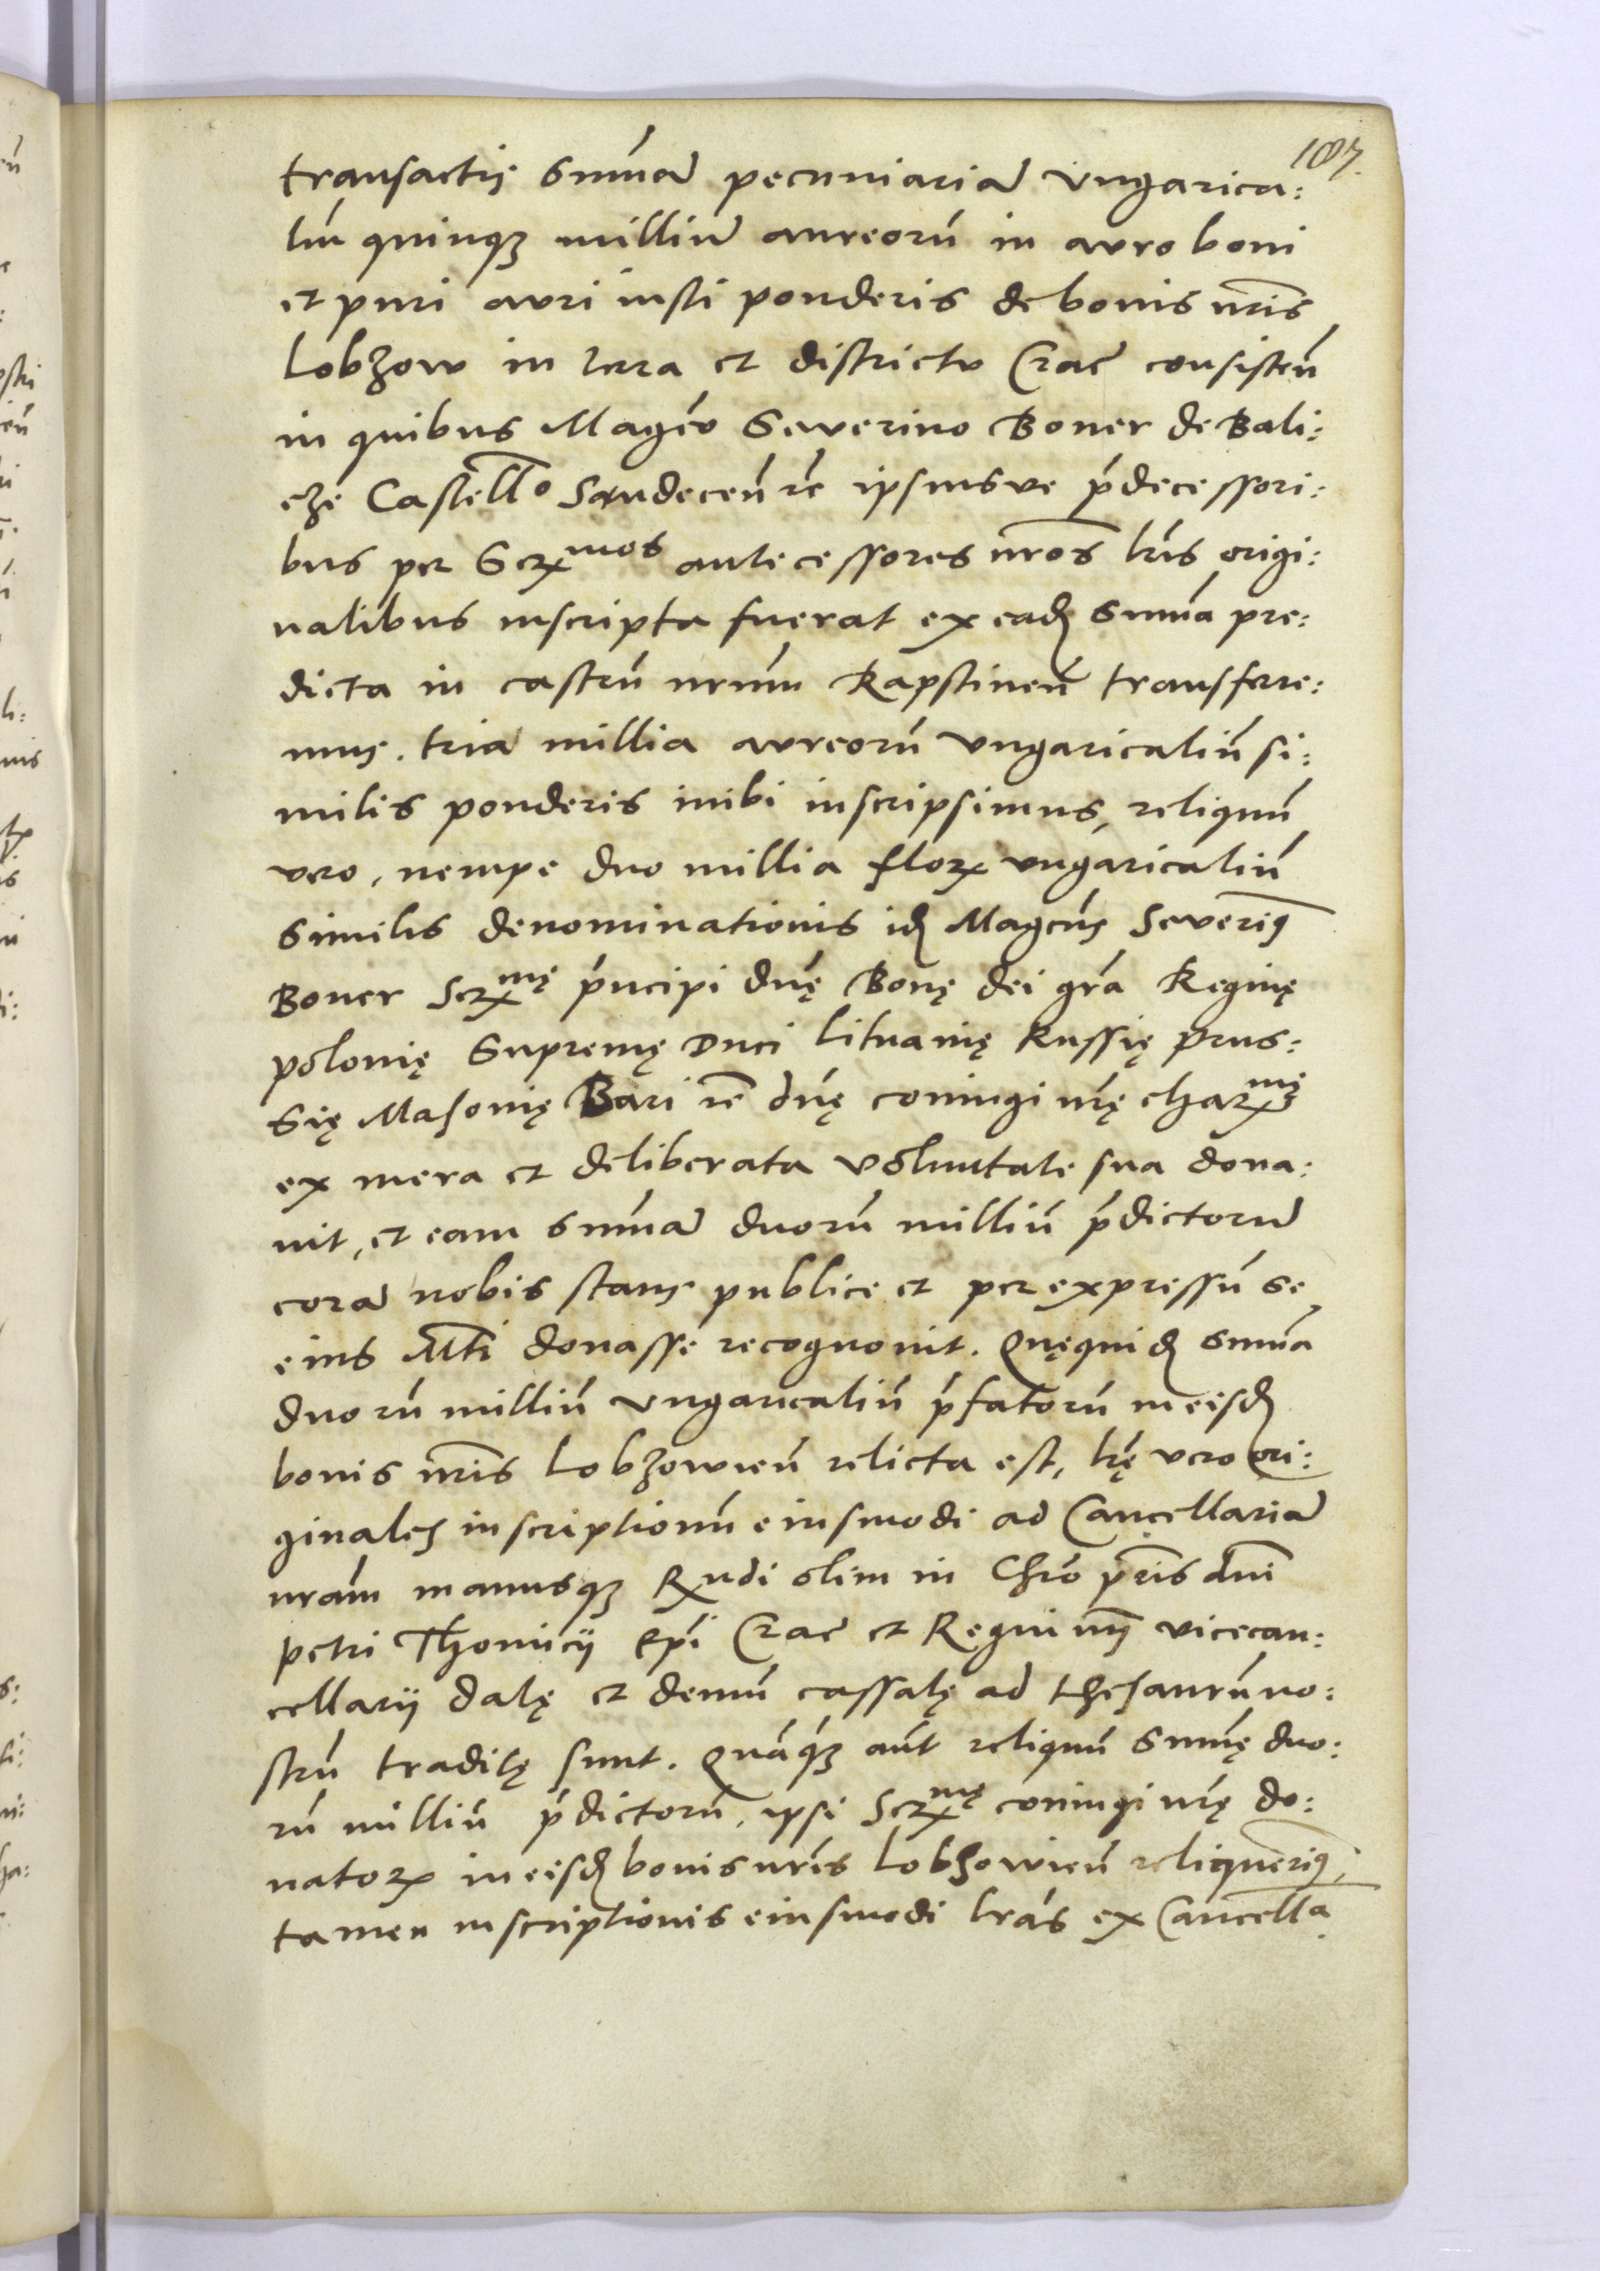 107.
transactis summā pecuniariā Ungarica:
liū quinqȝ milliū aureorū in auro boni
et puri auri iusti ponderis de bonis nr̄is
Lobzow in terra et districtu Crac̄ consisteñ
in quibus Mageō Severino Boner de Bali:
cze Castell̄o Sandeceñ rc̄ ipsiusve p̄decessori:
bus per Serꝝmos antecessores nr̄os lr̄is origi:
nalibus inscripta fuerat ex eadꝫ summa pre:
dicta in castrū nrūm Rapstineñ transferre:
mus. tria millia aureorū Ungaricaliū si:
milis ponderis inibi inscripsimus, reliquū
vero, nempe duo millia florꝝ ungaricaliū
similis denominationis idꝫ Magcūs Severiꝰ
Boner Serꝝmę p̄ncipi dn̄ę Bonę dei grā Reginę
Polonię Supremę Duci Lituanię Russię Prus:
się Masonię Bari rc̄ dn̄ę coniugi nr̄ę charꝝmę
ex mera et deliberata voluntate sua dona:
uit, et eam summā duorū milliū p̄dictorū
corā nobis stans publice et per expressū se
eius Mti donasse recognouit. Quęquidꝫ summa
duorū milliū Ungaricaliū p̄fatorū in eisdꝫ
bonis nr̄is Lobzowień relicta est, lr̄ę vero ori:
ginales inscriptionū eiusmodi ad Cancellariā
nrām manusqȝ Rꝝndi olim in Chr̄o pr̄is dn̄i
Petri Thomicij Ep̄i Crac̄ et Regni nr̄j vicecan:
cellarij datę et demū cassatę ad thesaurū no:
strū traditę sunt. Quāqȝ aūt reliquū summę duo:
rū milliū p̄dictorū, ipsi Serꝝmę coniugi nr̄ę do:
natorꝝ in eisdꝫ bonis nr̄is Lobzowień reliquerimꝰ,
tamen inscriptionis eiusmodi lrās ex Cancella